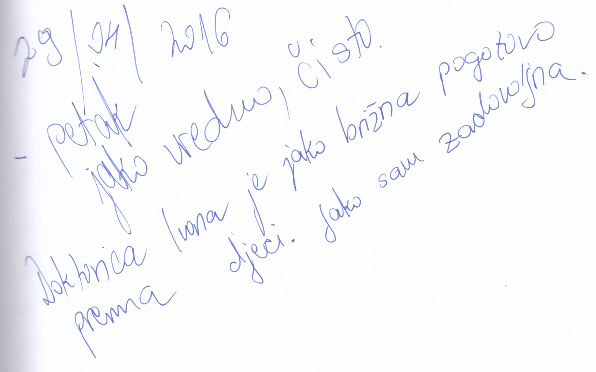 29/04/2016
- petak
jako uredno, čisto.
Doktorica Ivana je jako brižna pogotovo
prema djeci. Jako sam zadovoljna.